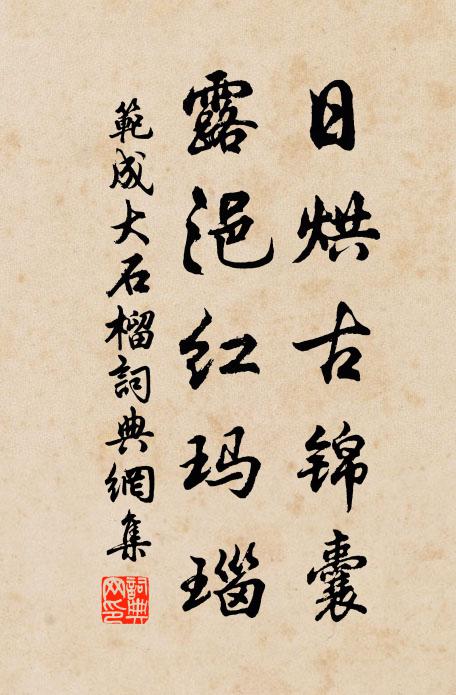 日烘古锦囊
露浥红玛瑙
範成大石榴詞典網集
詞典網印